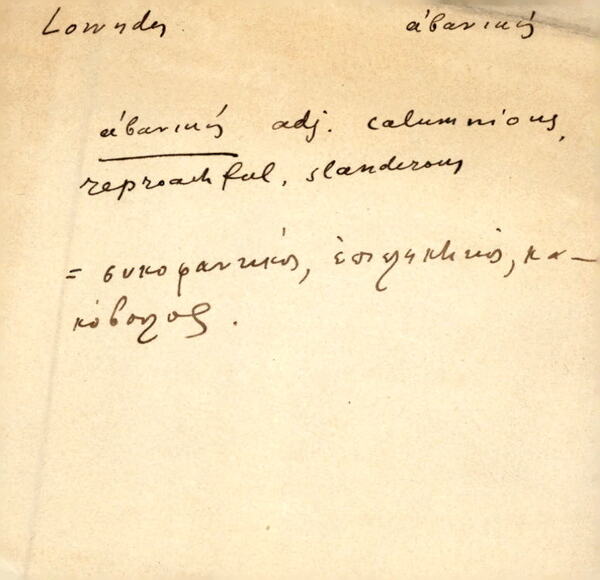 Lowndes ἀβανικός
ἀβανικός adj. calumnious,
reproachful, slanderous
= συκοφαντικός, ἐπιληκτικός, κα-
κόβουλος.